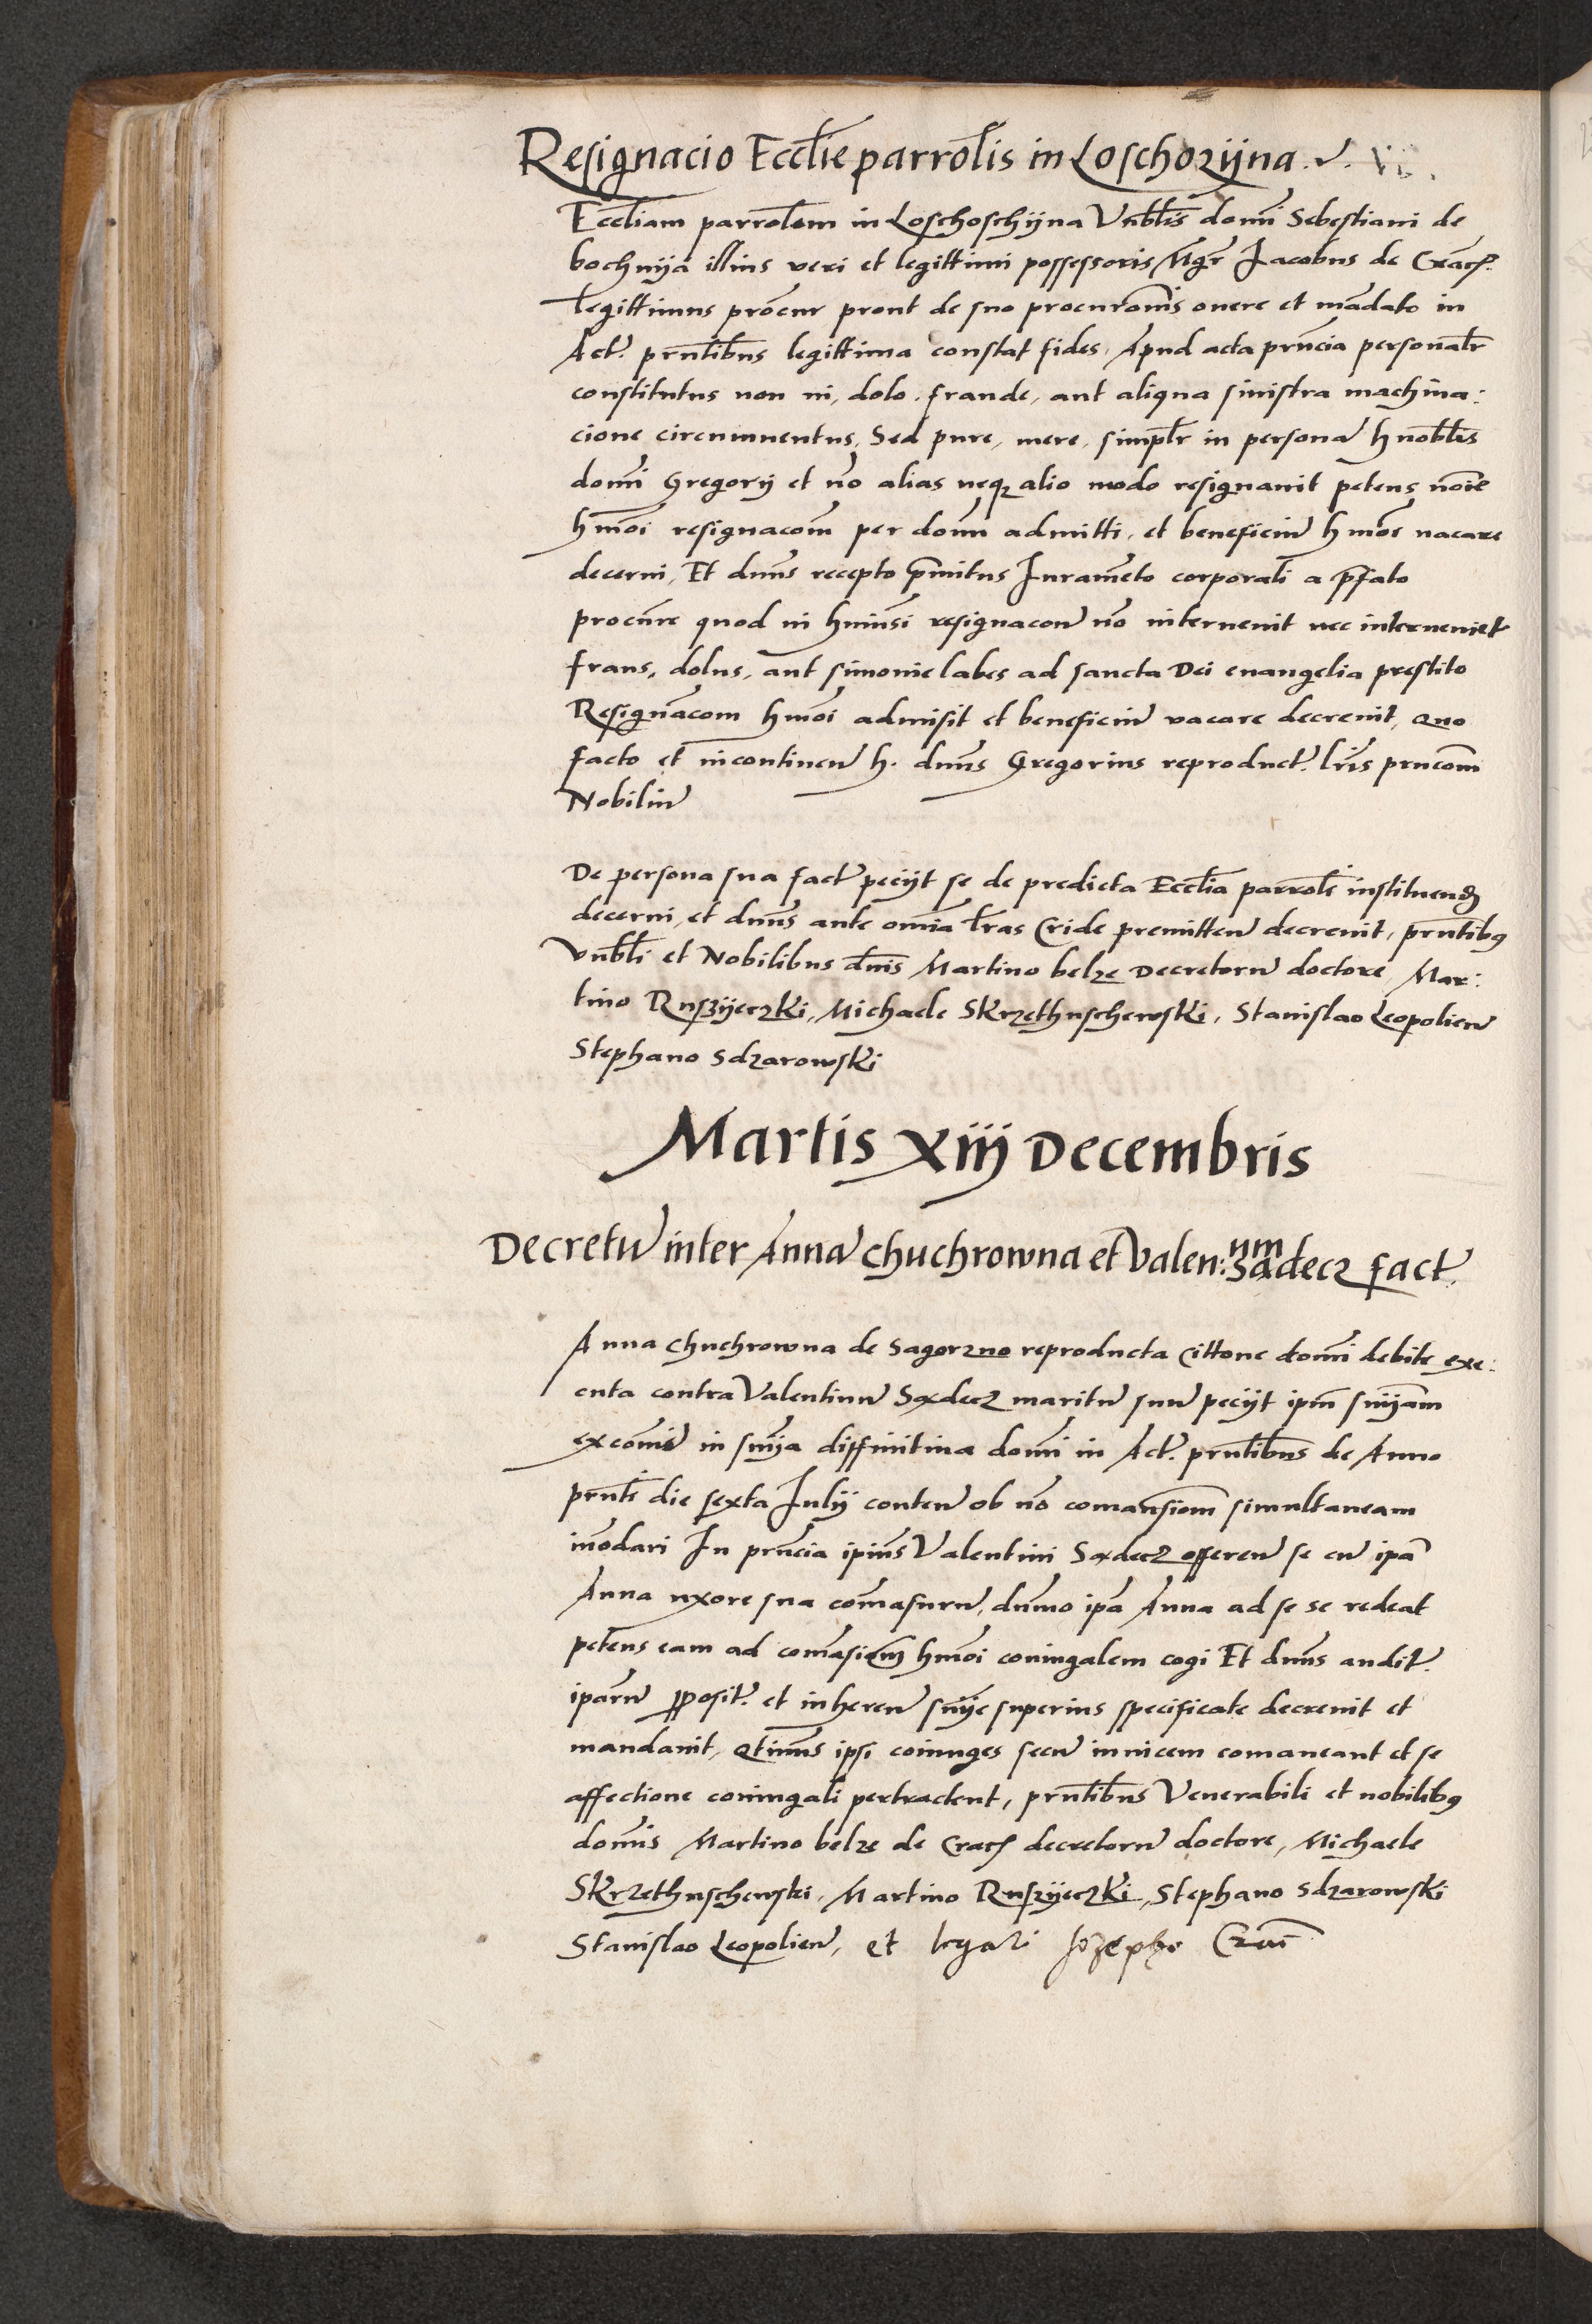 Resignacio Eccl̄ie parrol̄is in Loschozijna
Eccl̄iam parrol̄em in Loschoschijna Vn̄bl̄is don̄i Sebestiani de
bochnija illius veri et legittimi possessoris Mḡr Jacobus de Crac̄
legittimus procur̄ prout de suo procurōnis onere et mādato in
Act. prn̄tibus legittima constat fides, Apud acta prn̄cia personal̄r
constitutus non vi, dolo, fraude, aut aliqua sinistra machina:
cione circumuentus, Sed pure, mere, simpl̄r in persona h nobl̄is
don̄i Gregorij et nō alias neq₃ alio modo resignauit petens noīe
hmōi resignacōm per don̄m admitti, et beneficiū hmōi vacare
decerni, Et dn̄us recepto p̄mitus Juramēto corporali a p̄fato
procūre quod in huiusī resignacōn nō interuenit nec interueniet
fraus, dolus, aut simonie labes ad sancta Dei euangelia prestito
Resignācom hmōi admisit et beneficiū vacare decreuit, Quo
facto et incontinen̄ h. dn̄us Gregorius reproduct. lr̄is prn̄cōm
Nobiliū
De persona sua fact. pecijt se de predicta Eccl̄ia parrol̄i instituend
decerni, et dn̄us ante om̄ia lr̄as Cride premitten̄ decreuit, prn̄tibus
Vn̄bl̄i et Nobilibus dn̄is Martino belze Decretorū doctore, Mar:
tino Ruszijeczki, Michaele Skrzethuschewski, Stanislao Leopolien̄
Stephano Sdzarowski
Martis xiij Decembris
Decretū inter Annā Chuchrowna et Valen:num Sądecz fact.
Anna Chuchrowna de Sagorzno reproducta Cittōne don̄i debite exe:
cuta contra Valentinū Sądecz maritū suū pecijt ipm̄ sn̄ijam
excōmiē in sn̄ija diffinitiua don̄i in Act. prn̄tibus de Anno
prn̄ti die sexta Julij conten̄ ob nō comansiom̄ simultaneam
inōdari In prn̄cia ipius Valentini Sądecz offeren̄ se cū ipā
Anna uxore sua comāsurū, dūmo ipā Anna ad se se redeat
petens eam ad comāsiom̄ hmōi coniugalem cogi Et dn̄us audit.
iparū pposit. et inheren̄ sn̄ije superius specificate decreuit et
mandauit, Qtinus ipsi coniuges secū inuicem comaneant et se
affectione coniugali pertractent, prn̄tibus Venerabili et nobilibus
dom̄is Martino belze de Crac̄ decretorū doctore, Michaele
Skrzethuschewski, Martino Ruszijeczki, Stephano Sdzarowski
Stanislao Leopolien̄, et